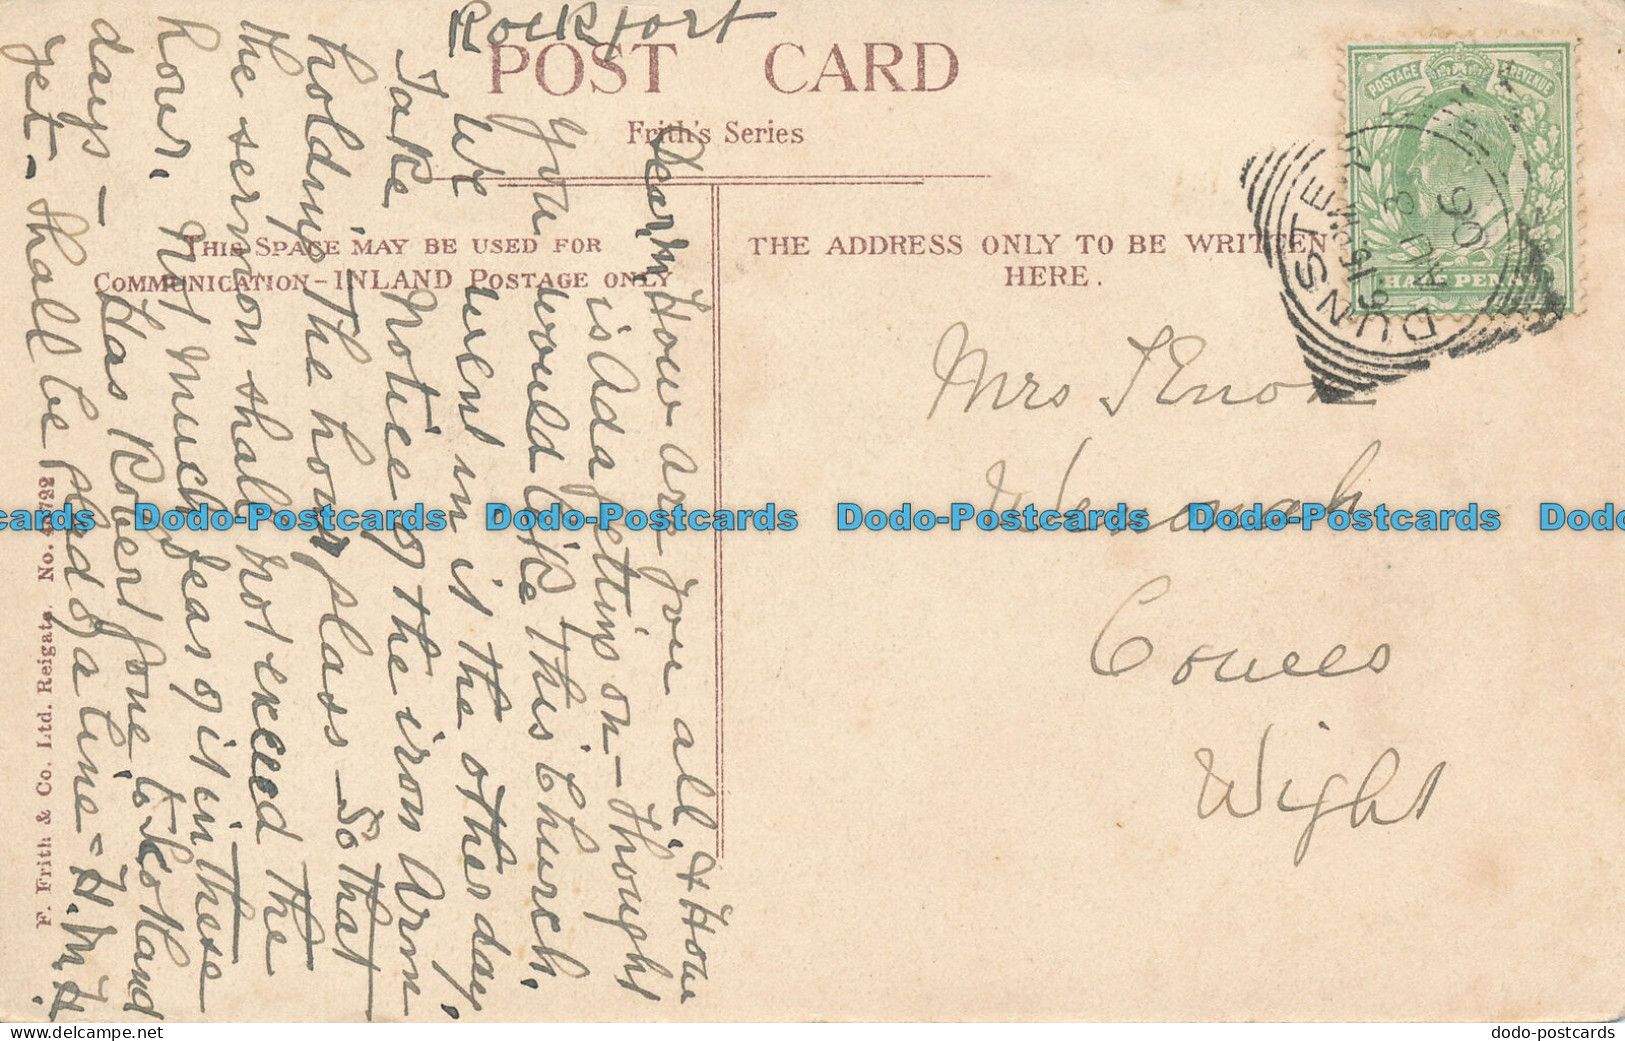 Rockfort
POST CARD
Frith's Series
THIS SPACE MAY BE USED FOR
COMMUNICATION-INLAND POSTAGE ONLY
THE ADDRESS ONLY TO BE WRITTEN
HERE.
POSTAGE REVENUE
HALF PENNY
DUNSTER
AU 3
06
Dear M
How are you all, & How
is Ada getting on - Thought
you would like this Church.
We went in it the other day.
Take Notice of the iron Arm
holding The hour glass So that
the sermon shall not exceed the
hour. Not much fear of it in these
days - Has Robert gone to Scotland
yet - Shall be glad of a line - H.M.H.
Mrs
Wenonah
Cowes
Wight
F. Frith & Co. Ltd. Reigate. No.
Dodo-Postcards Dodo-Postcards Dodo-Postcards Dodo-Postcards
dodo-postcards.com